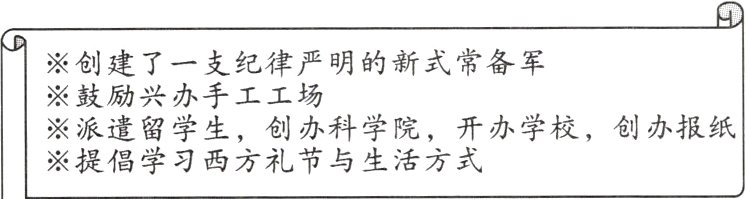 ※创建了一支纪律严明的新式常备军
※鼓励兴办手工工场
※派遣留学生，创办科学院，开办学校，创办报纸
※提倡学习西方礼节与生活方式